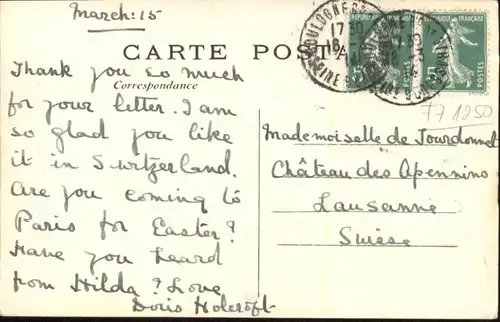 March: 15
CARTE POSTALE
Correspondance
Thank you so much
for your letter. I am
so glad you like
it in Switzerland.
Are you coming to
Paris for Easter?
Have you heard
from Hilda? Love
Doris Holcroft
BOULOGNE
17 30
SEINE
POSTES
77 1250
Mademoiselle de Jourdonnet
Château des Apennins
Lausanne
Suisse